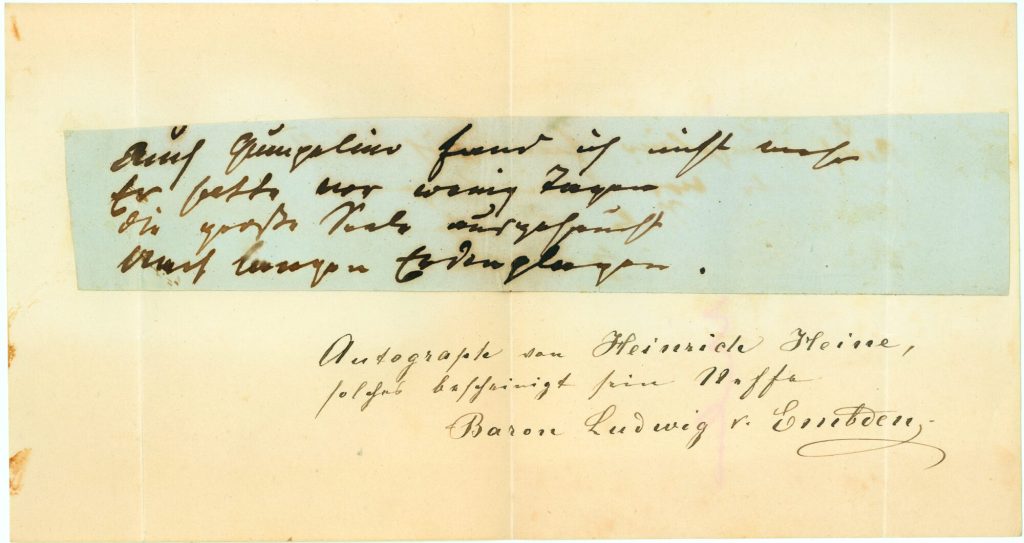 Auch Gumpelino fand ich nicht mehr
Er hatte vor wenig Tagen
die große Seele ausgehaucht
Nach langen Erdenplagen.
Autograph von Heinrich Heine,
solches bescheinigt sein Neffe
Baron Ludwig v. Embden